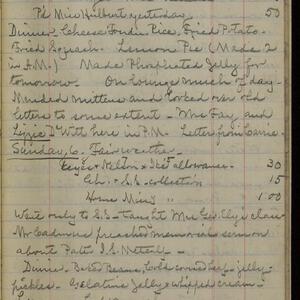 Pd Miss Hulbert yesterday 50
Dinner, Cheese Fondu Rice, Fried Potato-
Fried Squash. Lemon Pie (Made 2
in A.M.) Made Phosphated Jelly for
tomorrow. On lounge much of day-
Mended mittens and looked over old
letters to some extent. Mrs Fay, and
Lizzie D Witt here in P.M. Letter from Carrie.
Sunday, 6. Fair weather.
Eggs & allowance. 30
Ch. & S.S. collection 15
Home Miss'y 1 00
Went only to S.S. - taught Mrs Geo. Ely's class
Mr Cadmus preached memorial sermon
about Patti
Dinner Baked Beans, Cold corned beef - jelly-
pickles. Gelatine Jelly & whipped cream-